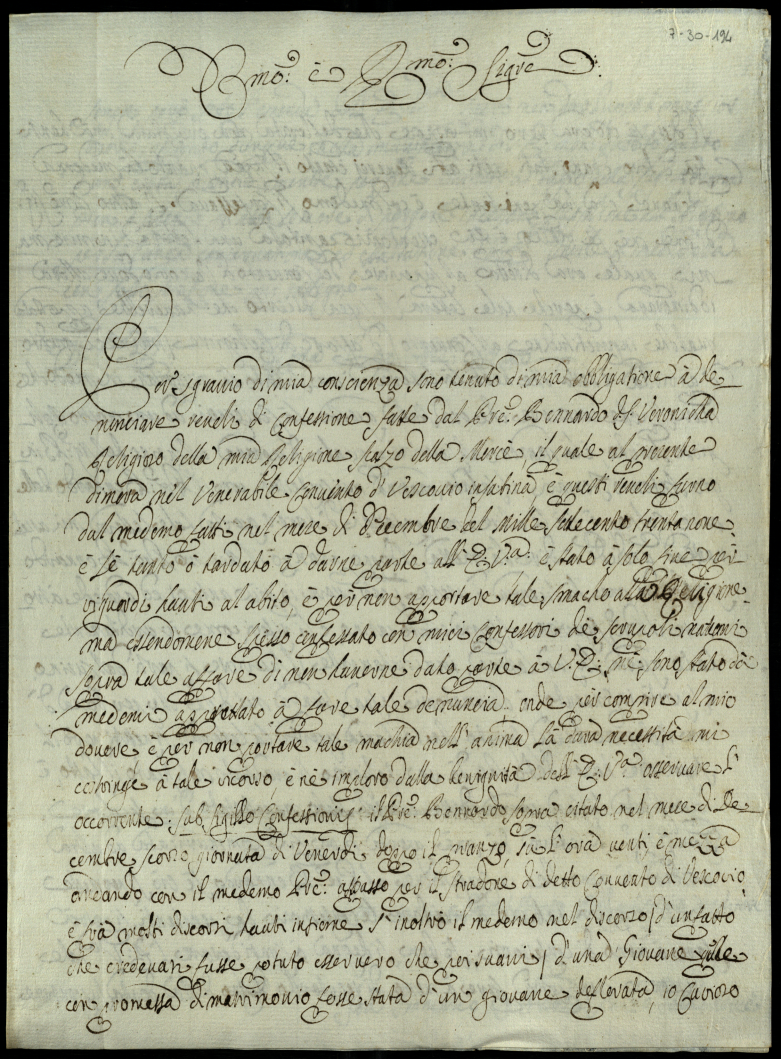 7-30-194
Rmo: è Rmo: Sigre
Per sgravio di mia conscienza sono tenuto di mia obbligatione à de
nunciare reveli di Confessione fatte dal Pre: Bennardo di Veroni della
Religioso della mia Religione scalzo della Mercè, il quale al presente
dimora nel Venerabile Convento di Vescovio in Sabina, è questi reveli furno
dal medemo fatti nel mese di Decembre del Mille settecento trenta nove
è se tanto ò tardato à darne parte all' P. Va: è stato à solo fine per
riguardi hauti al abito, è per non apportare tale macho alla Religione
ma essendomene spesso confessato con miei Confessori de scrupoli natomi
sopra tale affare di non haverne dato parte à V. P. ne sono stato da
medemi apprettato à fare tale denuncia onde per compire al mio
dovere, è per non portare tale machia nell' anima la dura necessità mi
costringe à tale ricorso, è nè imploro dalla benignità dell' P. Va: osservare l'
occorrente, sub sigillo Confessionis il Pre: Bennardo sopra citato nel mese di De
cembre scorzo giornata di Venerdi doppo il pranzo, sù l'ora venti è mezza
andando con il medemo Pre: a spasso per il stradone di detto Convento di Vescovio
è frà molti discorsi hauti insieme s' inoltrò il medemo nel discorzo / d' un fatto
che credevasi fusse potuto esser vero che persuasi / d' una Giovane quale
con promessa di matrimonio fosse stata d' un giovane deflorata, io curioso